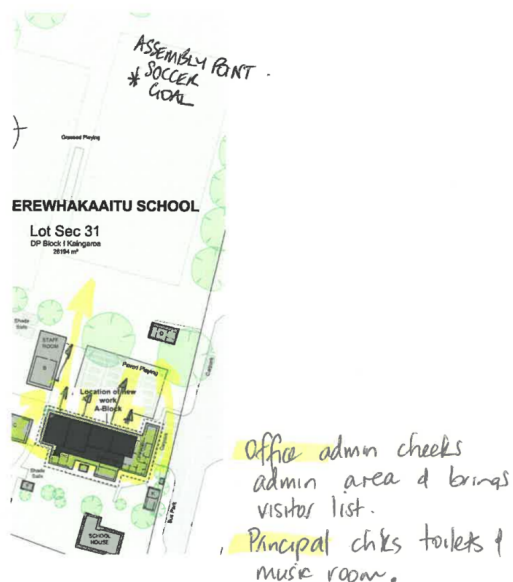 ASSEMBLY POINT.
* SOCCER
GOAL
Grassed Playing
EREWHAKAAITU SCHOOL
Lot Sec 31
DP Block I Kaingaroa
28194 m²
Shade
Sails
STAFF
ROOM
Paved Playing
Location of new
work
A-Block
Shade
Sails
Bus Park
SCHOOL
HOUSE
Office admin checks
admin area & brings
visitor list.
Principal chks toilets &
music room.